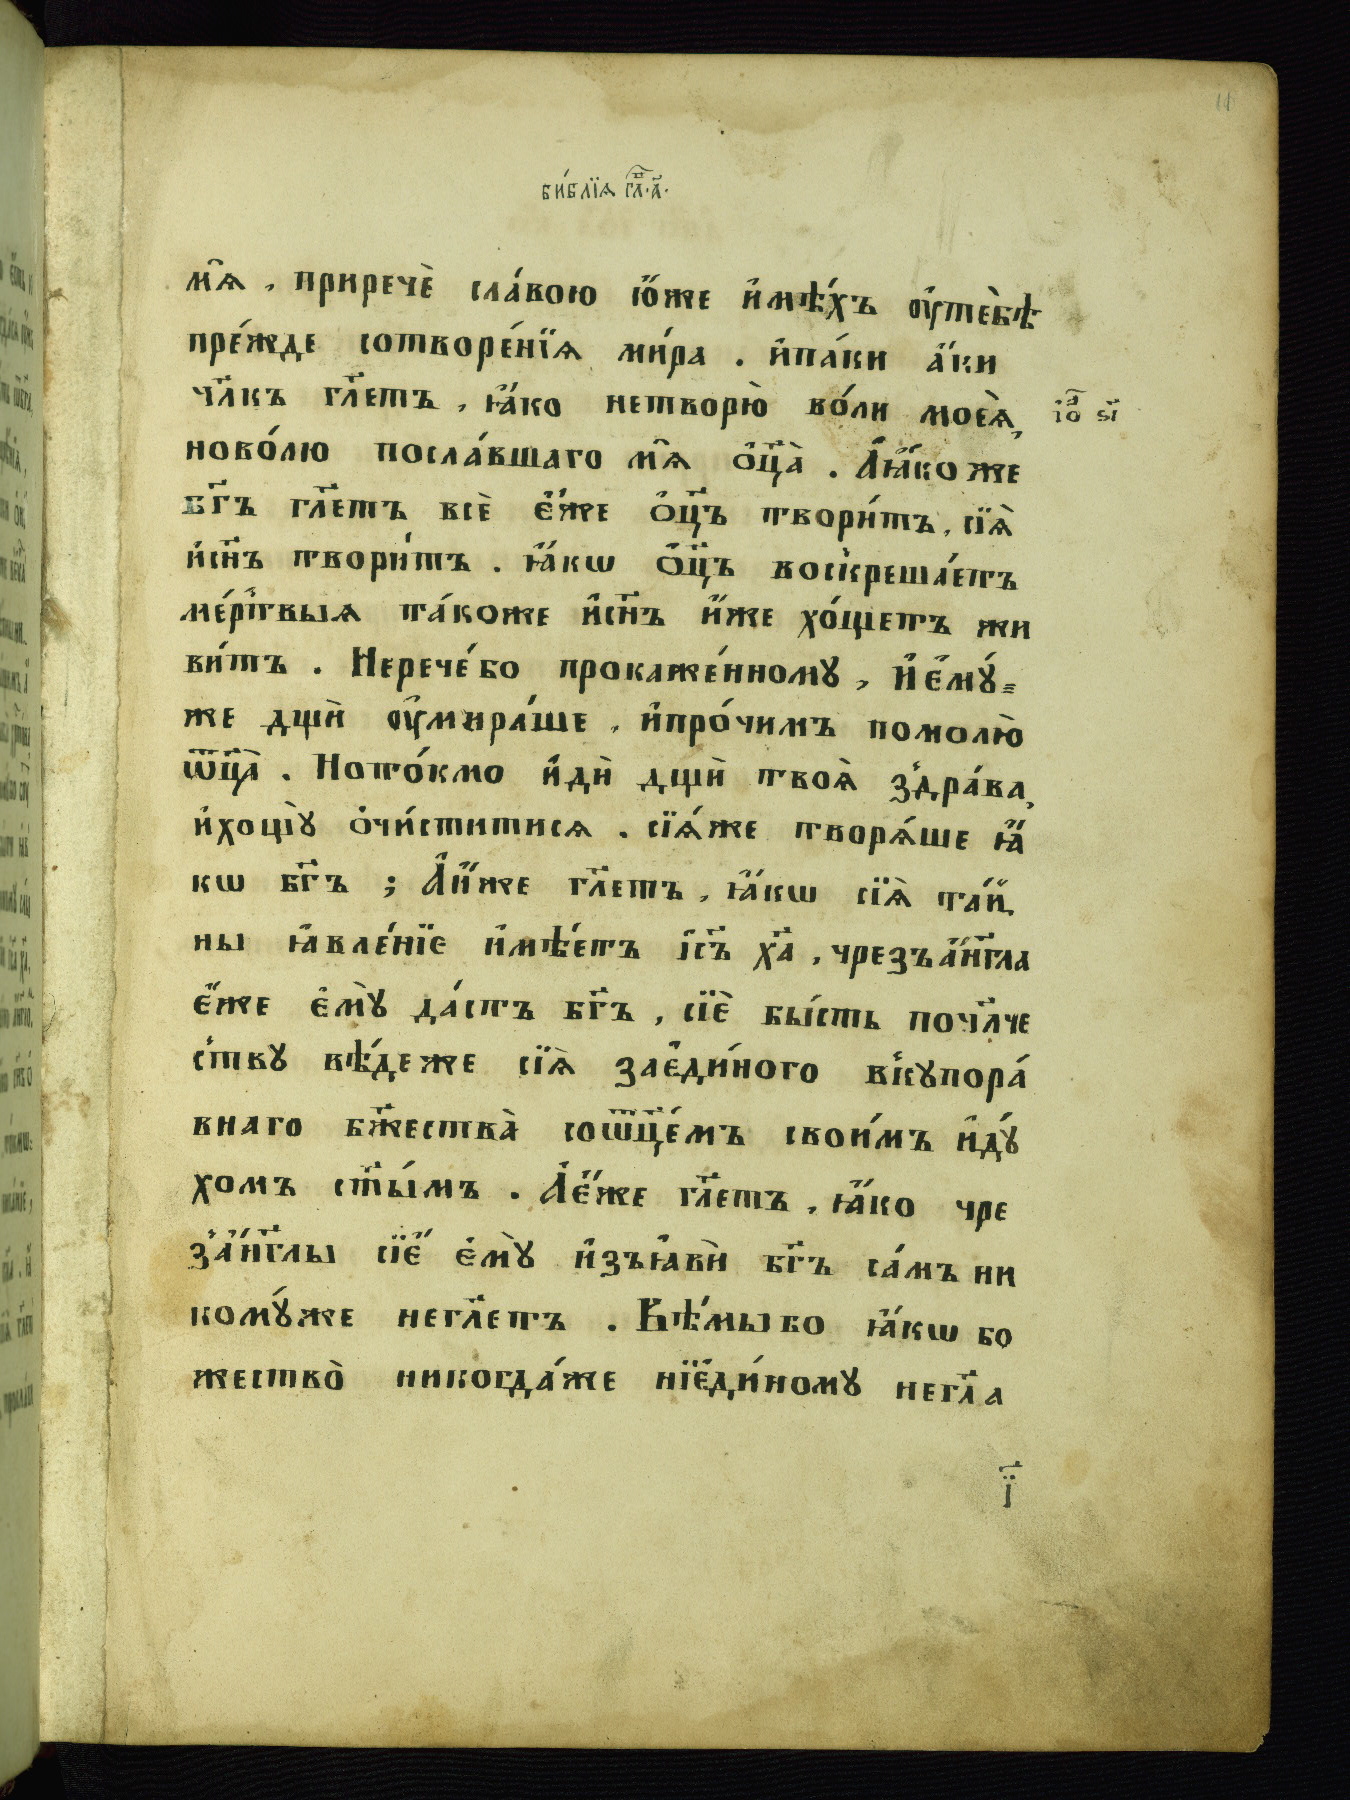 11
би́блїѧ гл҃в.а҃.
мѧ̑ , приречѐ сла́вою ю҆́же и҆мѣ́хъ оу҆тебѣ̀
пре́жде сотворе́нїѧ ми́ра . и҆па́ки а҆́ки
чл҃къ гл҃етъ , ꙗ҆́ко нетворю̀ во́ли моеѧ̀,
і҆ѡ д҃ ѕ҃і
ново́лю посла́вшаго мѧ̑ ѻ҆ц҃а̀ . А҆ꙗ҆́коже
бг҃ъ гл҃етъ всѐ є҆́же ѻ҆ц҃ъ твори́тъ, сїѧ̀
и҆сн҃ъ твори́тъ . ꙗ҆́кѡ ѻ҆ц҃ъ воскреша́етъ
ме́ртвыѧ та́коже и҆сн҃ъ и҆́же хо́щетъ жи
ви́тъ . Нерече́бо прокаже́нному , и҆є҆мꙋ́=
же дщѝ оу҆мира́ше , и҆про́чимъ помолю̀
ѿц҃а̀ .Ното́кмо и҆дѝ дщѝ твоѧ̀ здра́ва,
и҆хощꙋ̀ ѻ҆чи́ститисѧ . сїѧ́же творѧ́ше ꙗ҆́
кѡ бг҃ъ ; А҆и҆́же гл҃етъ , ꙗ҆́кѡ сїѧ̀ та́й
ны ꙗ҆вле́нїе и҆мѣ́етъ і҆с҃ъ х҃а , чрезъа҆́нг҃ла
є҆́же є҆мꙋ̀ да́стъ бг҃ъ , сїѐ бы́сть почл҃че
ствꙋ вѣ́деже сїѧ̀ зае҆ди́ного вкꙋпора́
внаго бж҃ества̀ соѿц҃е́мъ свои́мъ и҆дꙋ́
хомъ ст҃ы́мъ . А҆є҆́же гл҃етъ , ꙗ҆́ко чре
за҆́нг҃лы сїе҆́ є҆мꙋ̀ и҆зъꙗ҆вѝ бг҃ъ са́мъ ни
комꙋ́же негл҃етъ . Вѣ́мыбо ꙗ҆́кѡ бо
жество̀ никогда́же нїе҆ди́номꙋ негл҃а
і҃